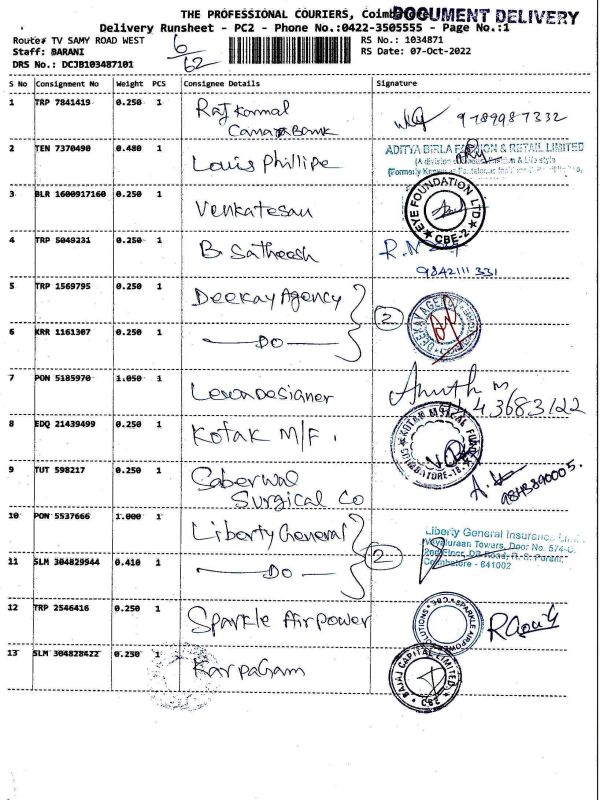 THE PROFESSIONAL COURIERS, Coimbatore
DOCUMENT DELIVERY
Delivery Runsheet - PC2 - Phone No.:0422-3505555 - Page No.:1
Route# TV SAMY ROAD WEST
Staff: BARANI
DRS No.: DCJB103487101
6/62
RS No.: 1034871
RS Date: 07-Oct-2022
S No Consignment No Weight PCS Consignee Details Signature
1 TRP 7841419 0.250 1 Raj Kamal
Canara Bank
9789987332
2 TEN 7370490 0.480 1 Louis Phillipe
ADITYA BIRLA FASHION & RETAIL LIMITED
(A division of Fashion & Life style
(Formerly Known as Pantaloons
3 BLR 1600917160 0.250 1 Venkatesan
EYE FOUNDATION LTD
★ CBE-2 ★
4 TRP 5049231 0.250 1 B. Satheesh
R.N
9842111 331
5 TRP 1569795 0.250 1 Deekay Agency
2
DEEKAY AGENCY
6 KRR 1161307 0.250 1 — DO —
7 PON 5185970 1.050 1
8 EDQ 21439499 0.250 1 Kotak M/F.
KOTAK MUTUAL FUND
COIMBATORE-18
9 TUT 598217 0.250 1 Saberwal
Surgical Co
9843890005.
10 PON 5537666 1.000 1 Liberty General
2
Liberty General Insurance
Towers, Door No. 574-
2nd Floor, DB Road, R. S. Puram,
Coimbatore - 641002
11 SLM 304829944 0.410 1 — DO —
12 TRP 2546416 0.250 1 Sparkle Airpower
SPARKLE AIRPOWER SOLUTIONS ★ CBE
13 SLM 304828422 0.250 1 Karpagam
BAJAJ CAPITAL LIMITED